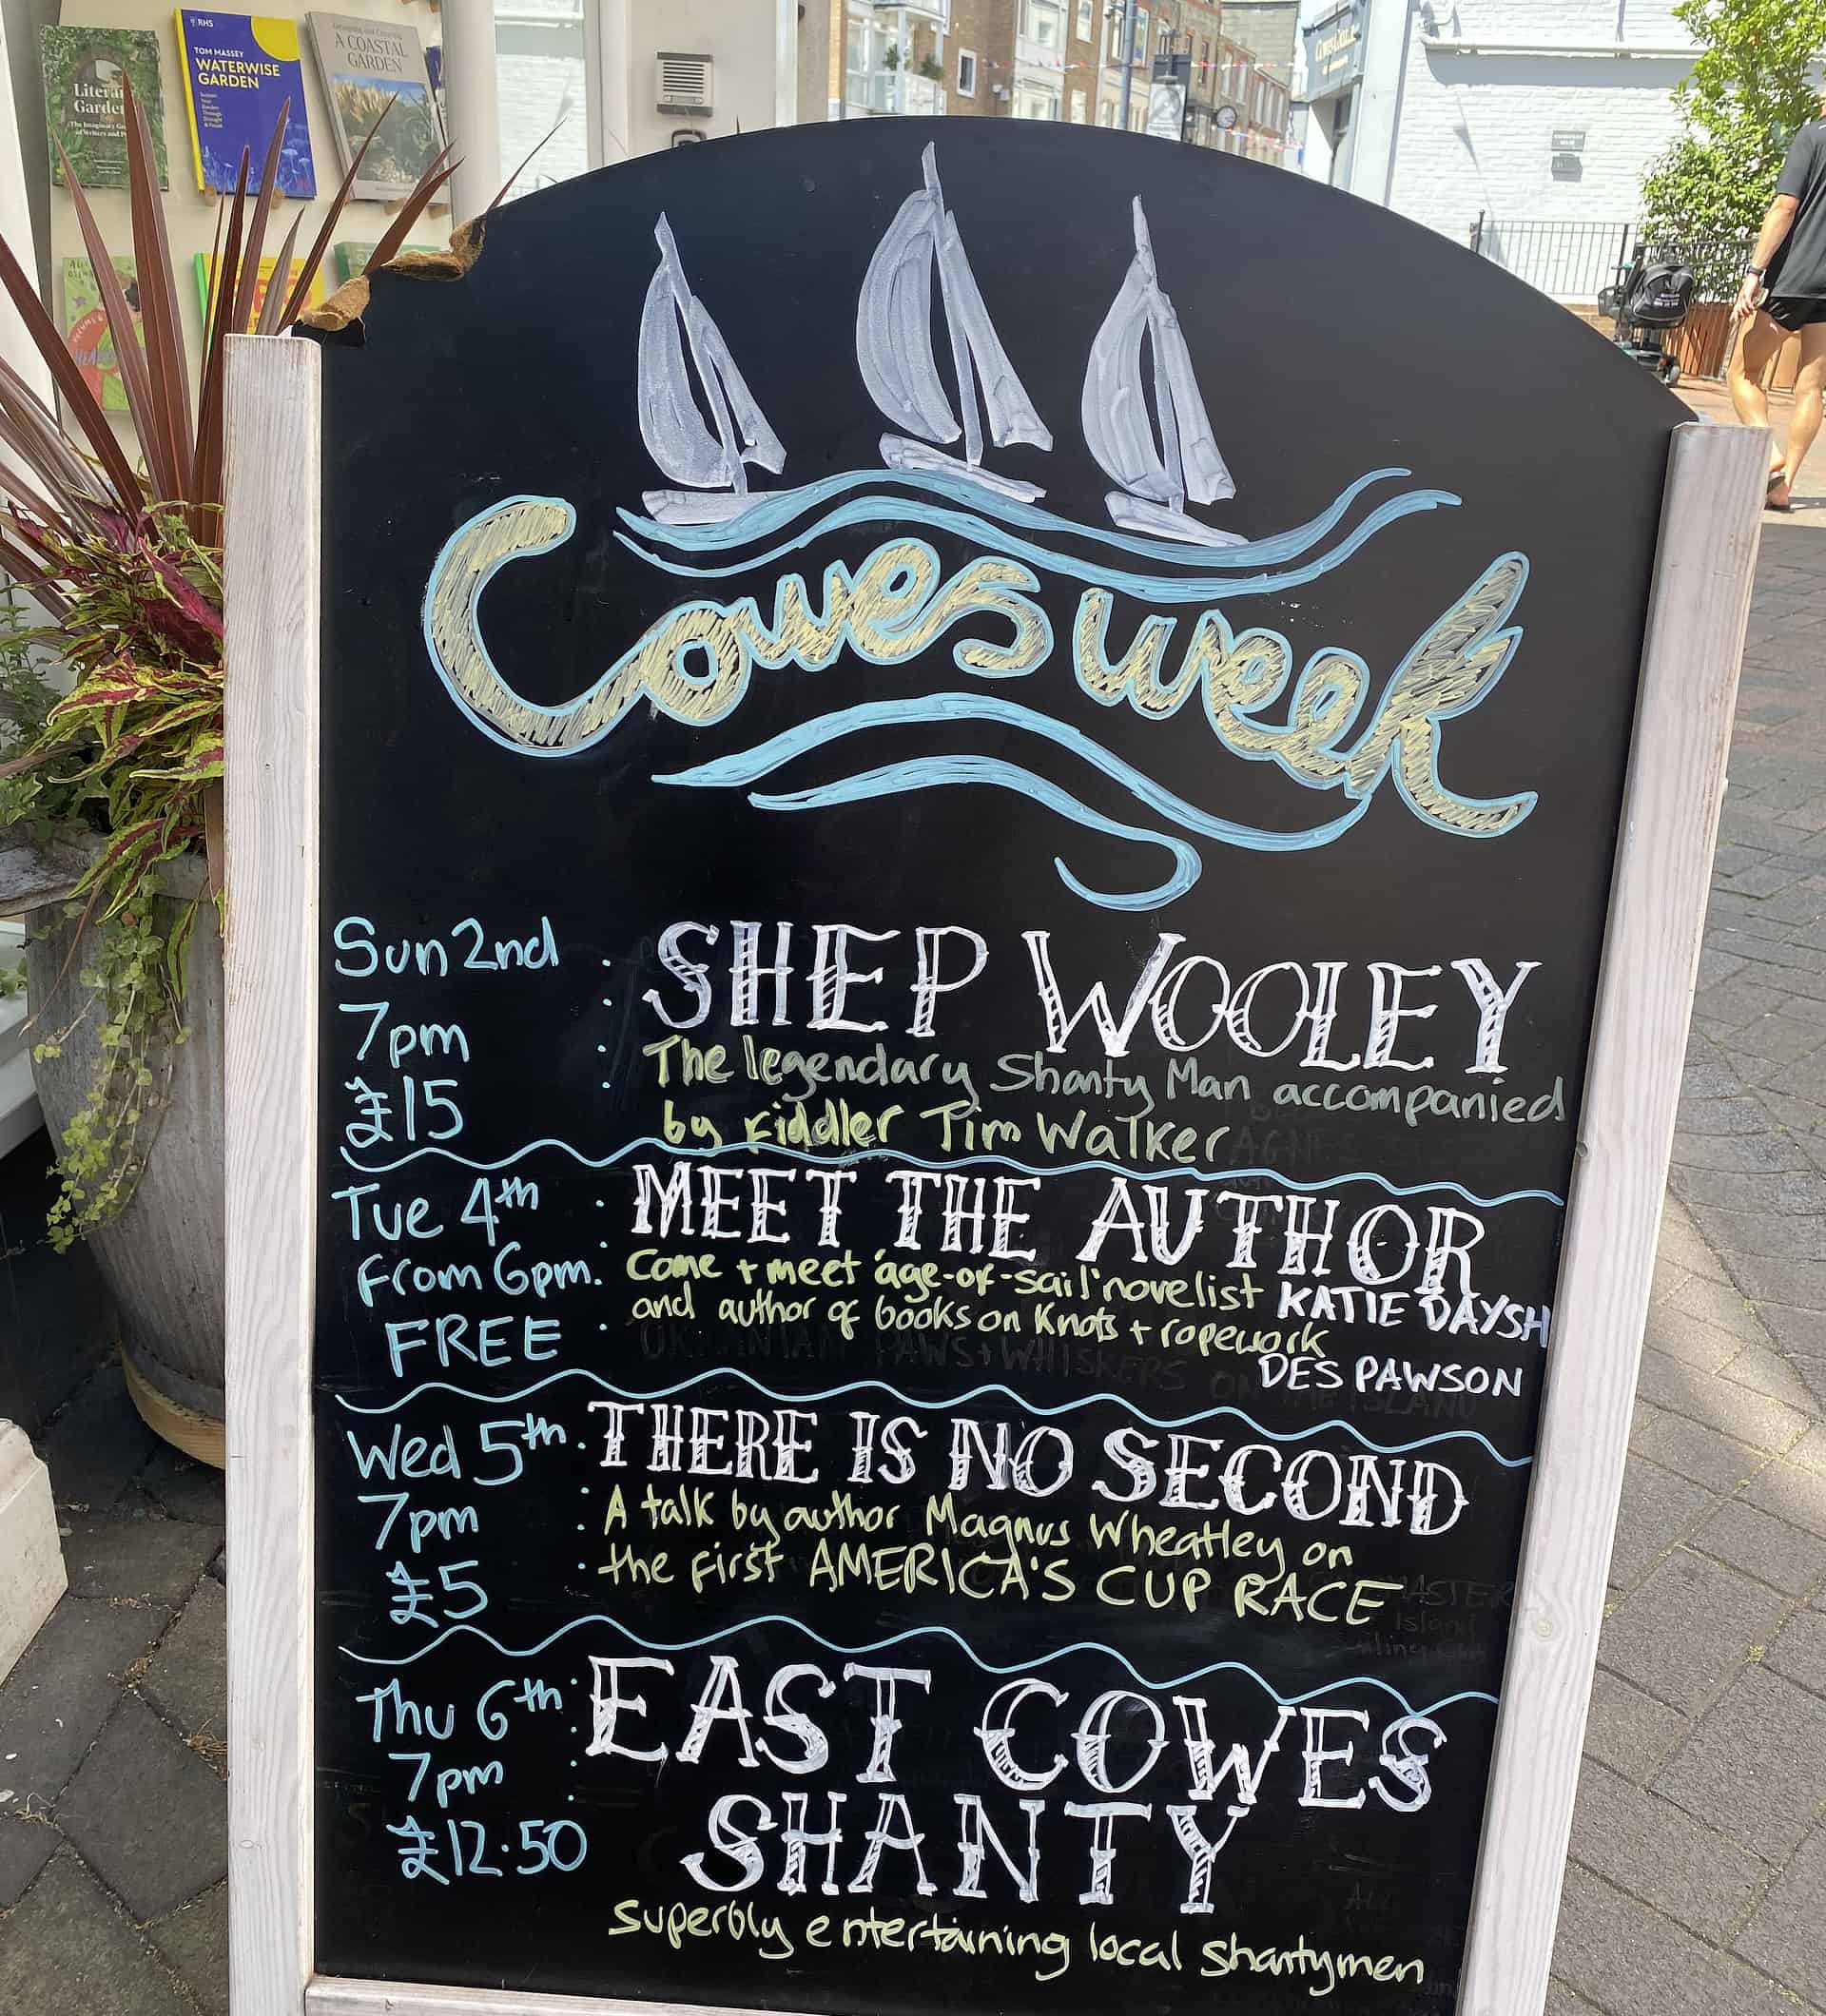 Literary
Garden
RHS
TOM MASSEY
WATERWISE
GARDEN
A COASTAL
GARDEN
Cowes week
Sun 2nd
7pm
£15
SHEP WOOLEY
The legendary Shanty Man accompanied
by Fiddler Tim Walker
Tue 4th
From 6pm.
FREE
MEET THE AUTHOR
Come + meet 'age-of-sail' novelist KATIE DAYSH
and author of books on Knots + ropework
DES PAWSON
Wed 5th
7pm
£5
THERE IS NO SECOND
A talk by author Magnus Wheatley on
the first AMERICA'S CUP RACE
Thu 6th
7pm
£12.50
EAST COWES
SHANTY
Superbly entertaining local shantymen